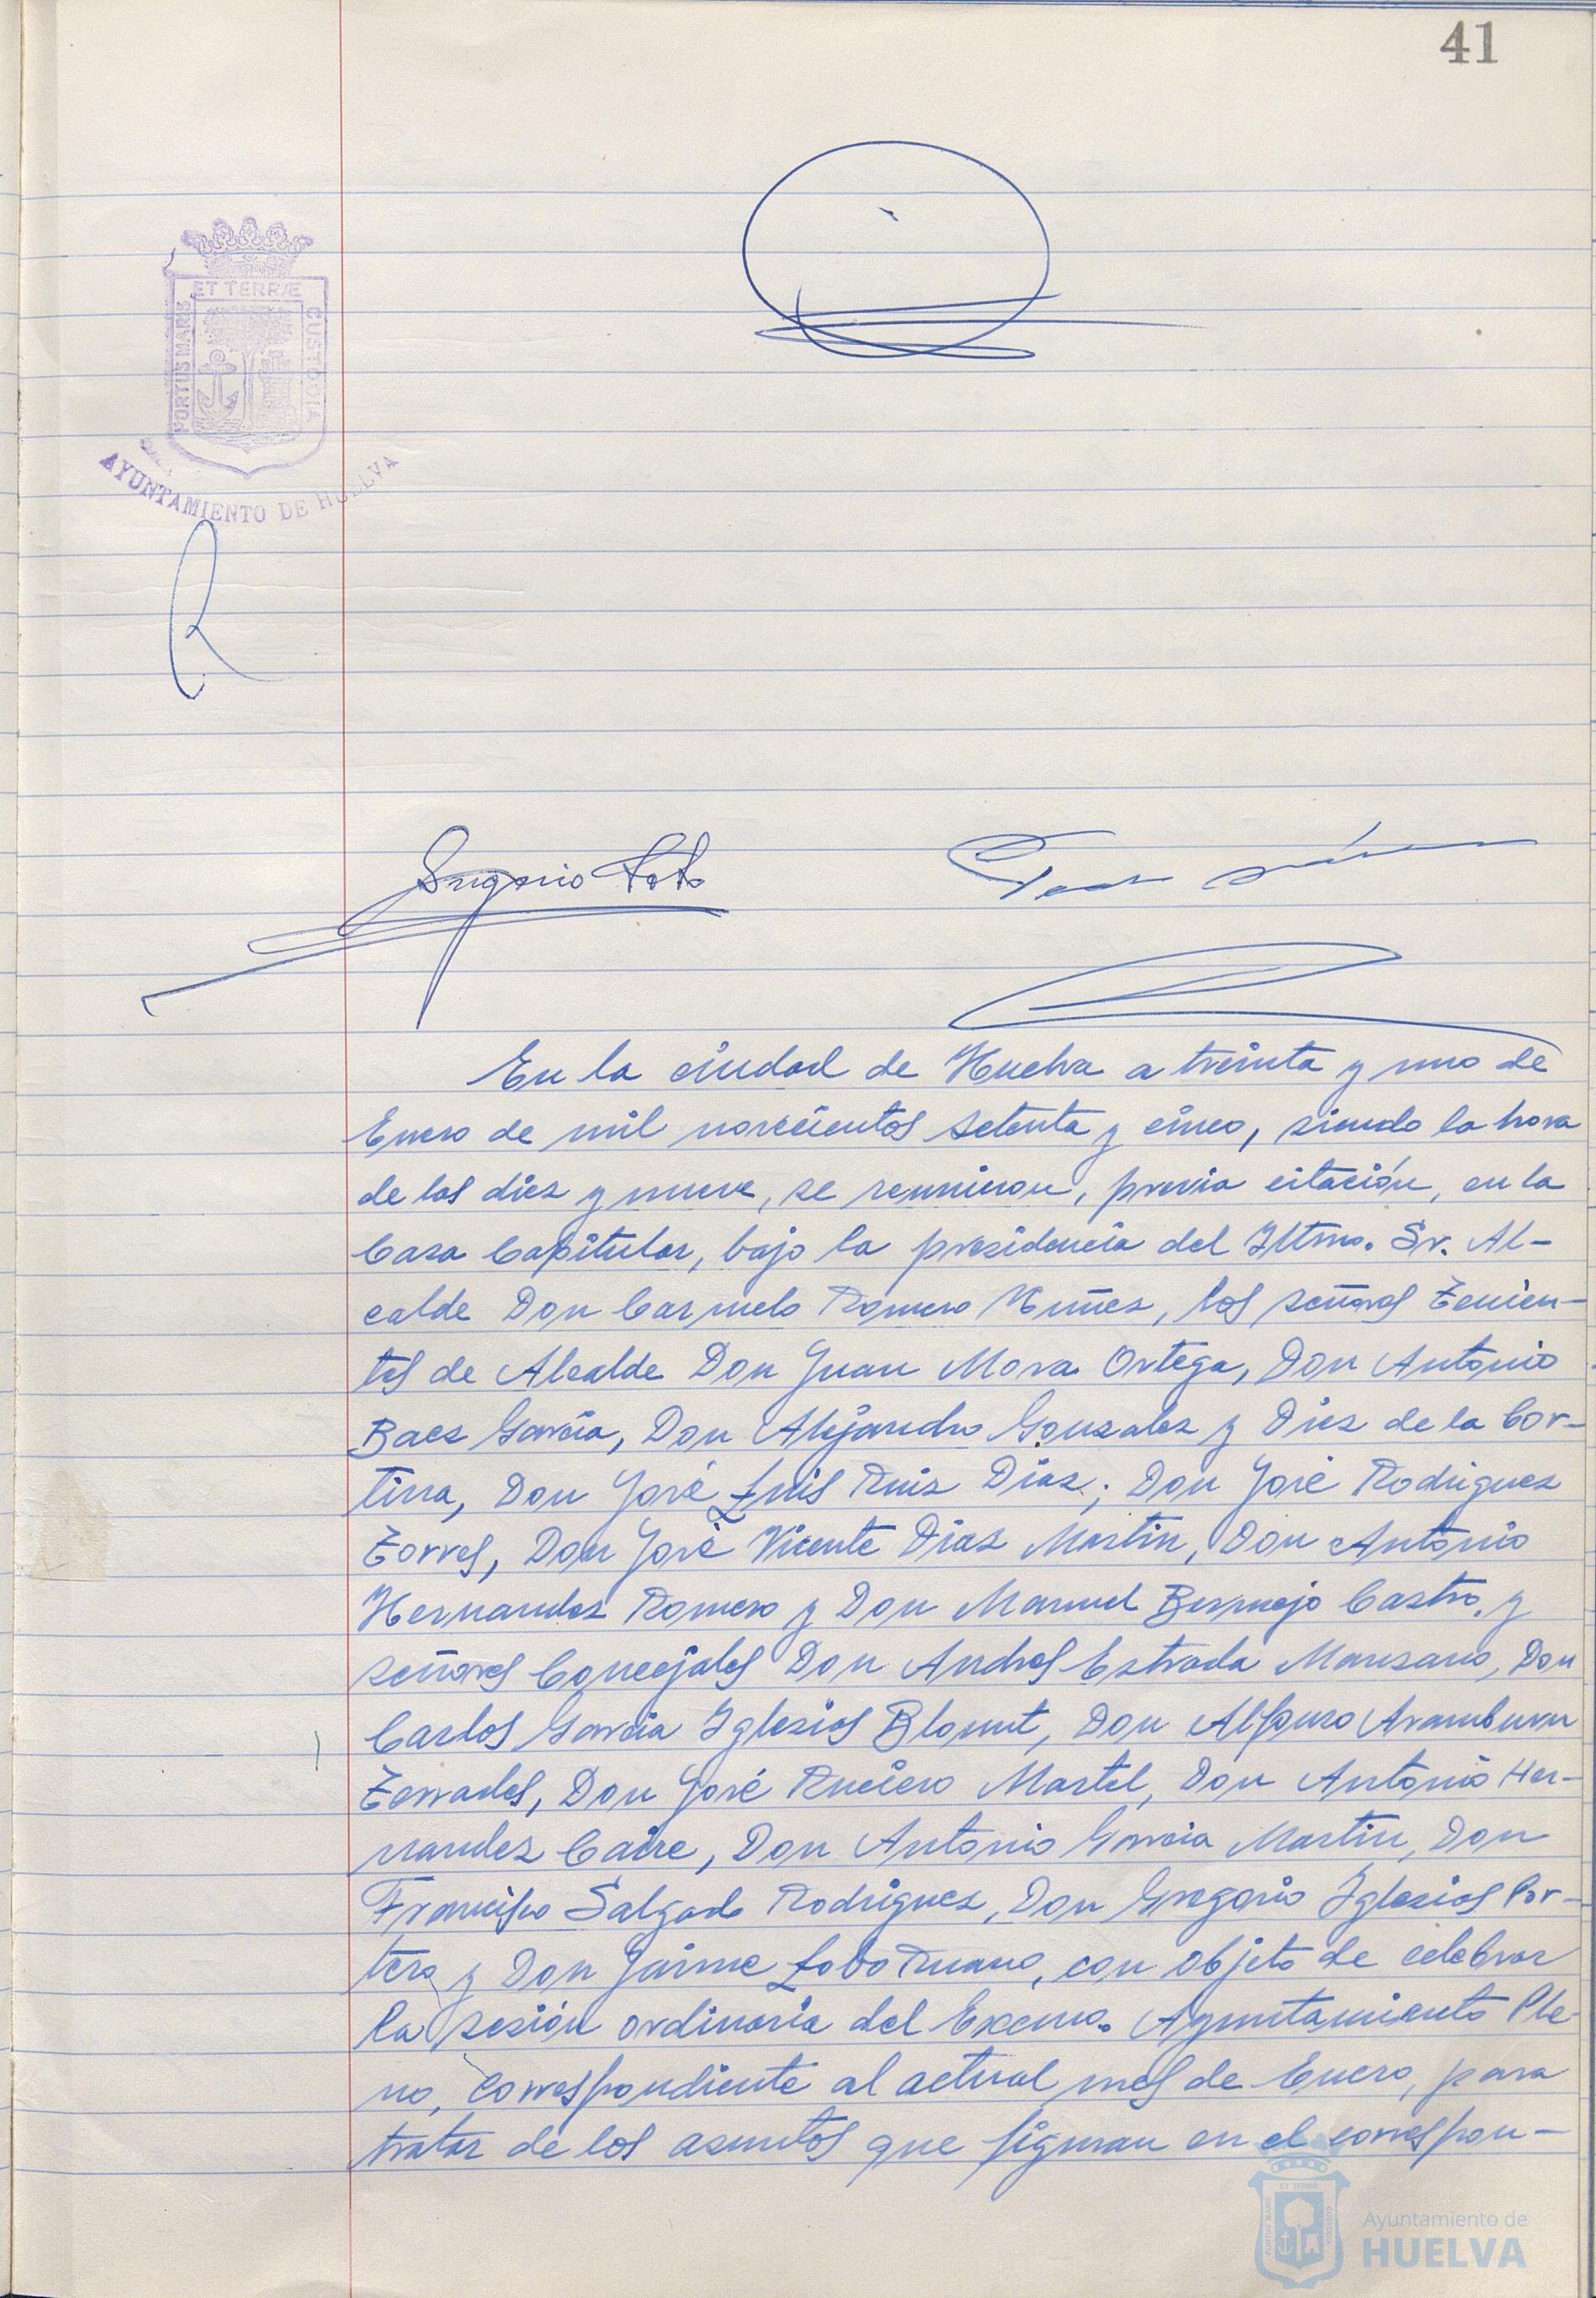 41
ET TERRÆ
PORTUS MARIS
CUSTODIA
AYUNTAMIENTO DE HUELVA
En la ciudad de Huelva a treinta y uno de
Enero de mil novecientos setenta y cinco, siendo la hora
de las diez y nueve, se reunieron, previa citación, en la
Casa Capitular, bajo la presidencia del Iltmo. Sr. Al-
calde Don Carmelo Romero Nuñez, los señores Tenien-
tes de Alcalde Don Juan Mora Ortega, Don Antonio
Baez García, Don Alejandro Gonzalez y Diez de la Cor-
tina, Don José Luis Ruiz Díaz; Don José Rodriguez
Torres, Don José Vicente Diaz Martin, Don Antonio
Hernandez Romero y Don Manuel Bermejo Castro, y
señores Concejales Don Andres Estrada Manzano, Don
Carlos Garcia Iglesias Blount, Don Alfonso Aramburu
Terrades, Don José Ruciero Martel, Don Antonio Her-
nandez Caire, Don Antonio Garcia Martin, Don
Francisco Salgado Rodriguez, Don Gregorio Iglesias Por-
tero y Don Jaime Lobo Ruano, con objeto de celebrar
la sesión ordinaria del Excmo. Ayuntamiento Ple-
no, correspondiente al actual mes de Enero, para
tratar de los asuntos que figuran en el correspon-
Ayuntamiento de
HUELVA